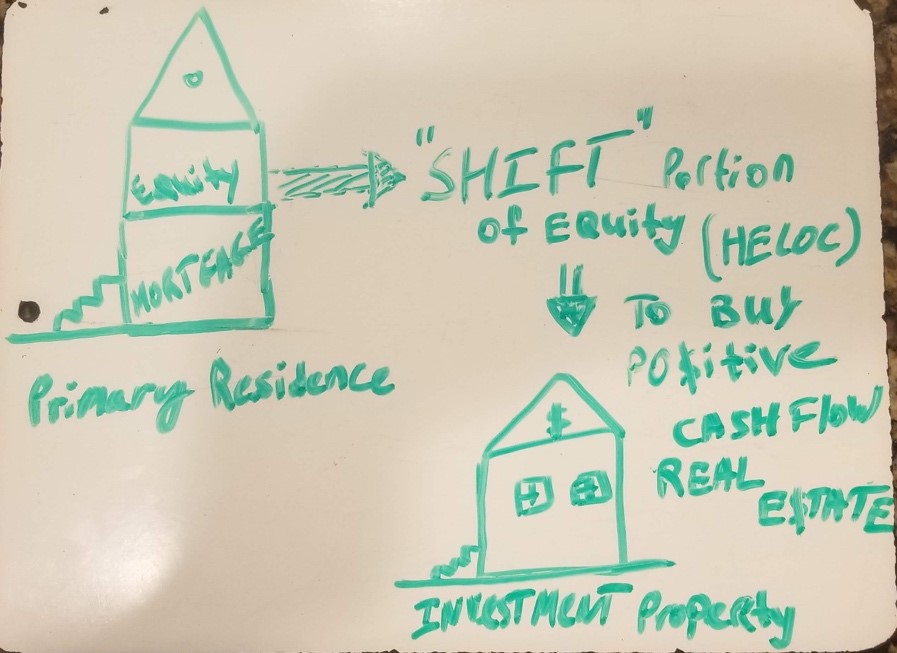 EQuity
MORTGAGE
Primary Residence
"SHIFT" Portion
of EQuity (HELOC)
To Buy
PO$itive
CASH Flow
REAL
E$TATE
$
INVESTMENT Property